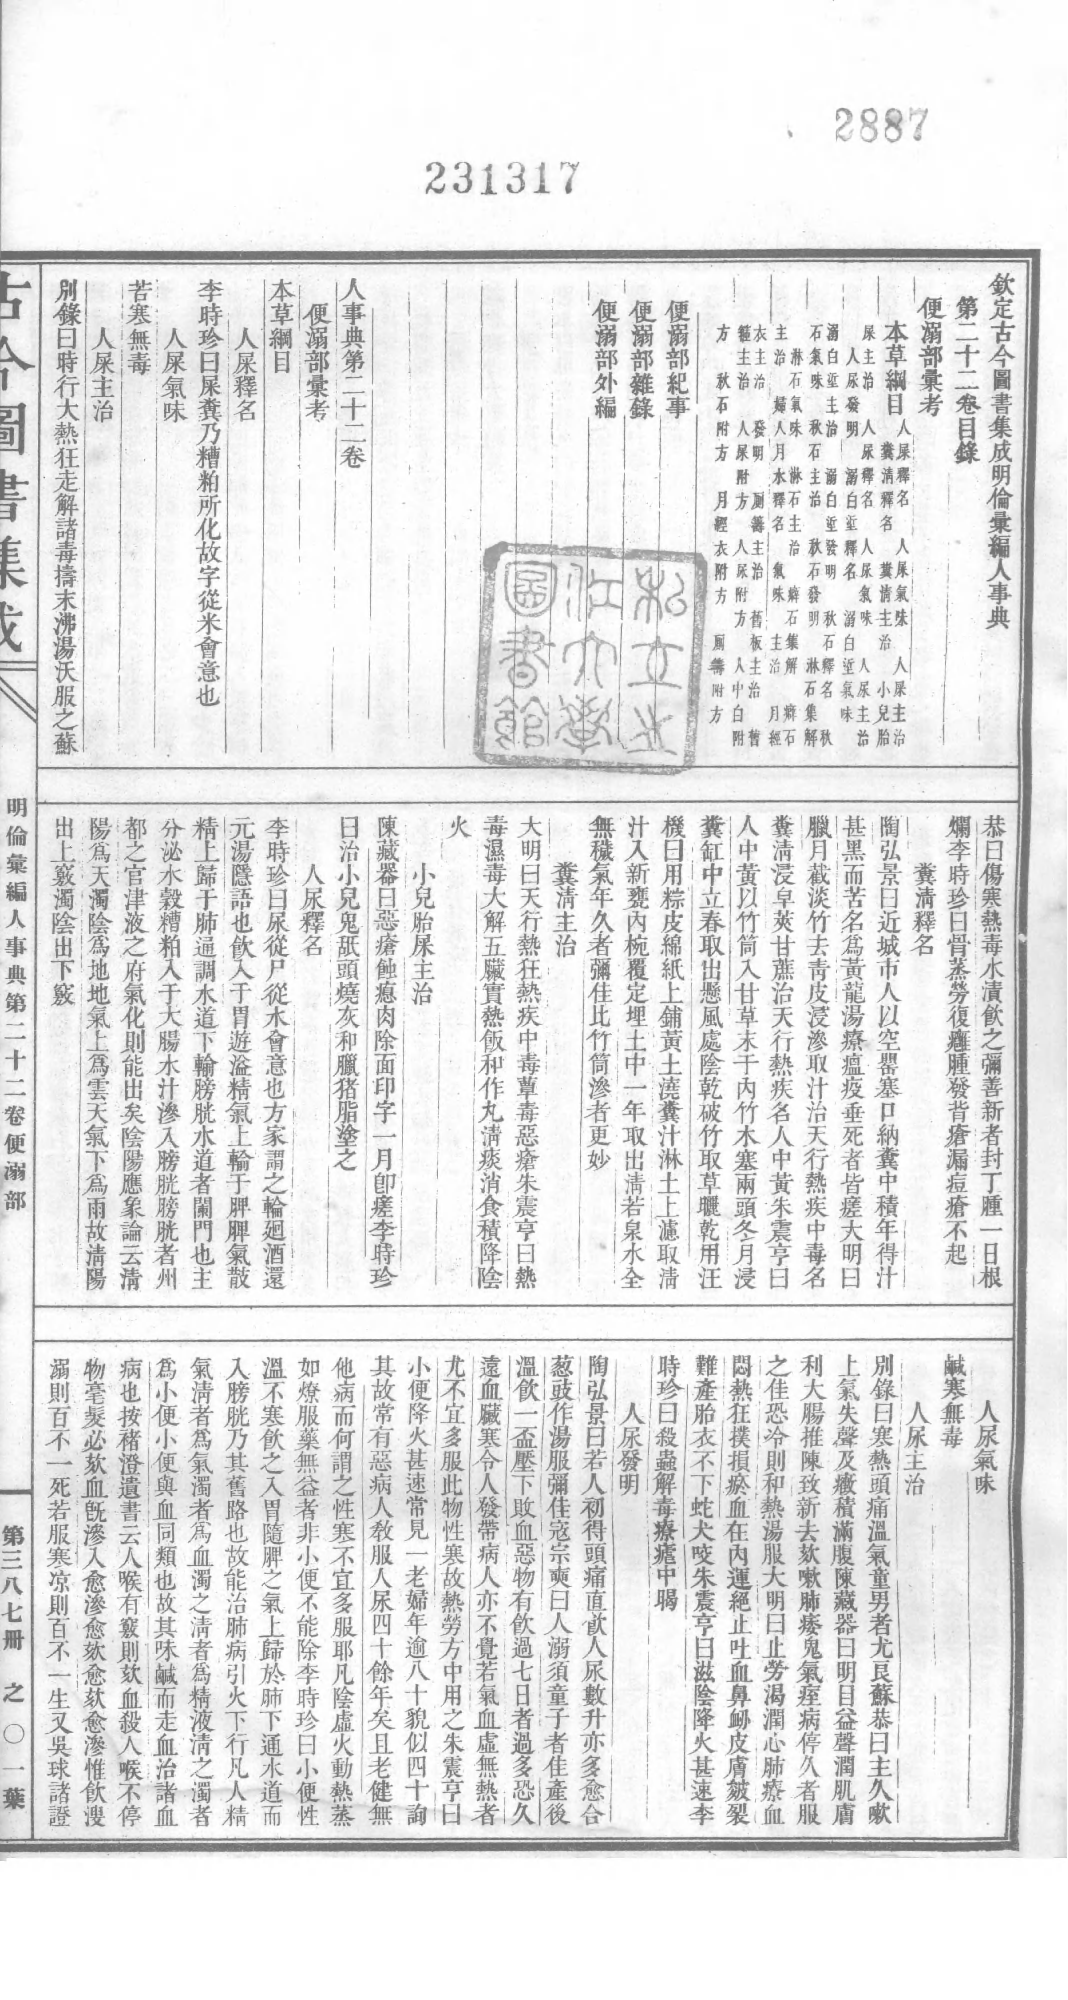 2887
231317
欽定古今圖書集成明倫彙編人事典
第二十二卷目錄
便溺部彙考
本草綱目
人屎釋名 人屎氣味 人屎主治
糞淸釋名 糞淸主治 小兒胎
屎主治 人尿釋名 人尿氣味 人尿主治
人尿發明 溺白垽釋名 溺白垽氣味
溺白垽主治 溺白垽發明 秋石釋名 秋
石氣味 秋石主治 秋石發明 淋石集解
淋石氣味 淋石主治 癖石集解 癖石
主治 婦人月水釋名 氣味 主治 月經
衣主治 發明 厠籌主治 舊板主治 舊
箍主治 人屎附方 人尿附方 人中白附
方 秋石附方 月經衣附方 厠籌附方
便溺部紀事
便溺部雜錄
便溺部外編
人事典第二十二卷
便溺部彙考
本草綱目
人屎釋名
李時珍曰屎糞乃糟粕所化故字從米會意也
人屎氣味
苦寒無毒
人屎主治
別錄曰時行大熱狂走解諸毒擣末沸湯沃服之蘇
恭曰傷寒熱毒水漬飲之彌善新者封丁腫一日根
爛李時珍曰骨蒸勞復癰腫發背瘡漏痘瘡不起
糞淸釋名
陶弘景曰近城市人以空罌塞口納糞中積年得汁
甚黑而苦名爲黃龍湯療瘟疫垂死者皆瘥大明曰
臘月截淡竹去靑皮浸滲取汁治天行熱疾中毒名
糞淸浸皁莢甘蔗治天行熱疾名人中黃朱震亨曰
人中黃以竹筒入甘草末于內竹木塞兩頭冬月浸
糞缸中立春取出懸風處陰乾破竹取草曬乾用汪
機曰用椶皮綿紙上鋪黃土澆糞汁淋土上濾取淸
汁入新甕內椀覆定埋土中一年取出淸若泉水全
無穢氣年久者彌佳比竹筒滲者更妙
糞淸主治
大明曰天行熱狂熱疾中毒蕈毒惡瘡朱震亨曰熱
毒濕毒大解五臟實熱飯和作丸淸痰消食積降陰
火
小兒胎屎主治
陳藏器曰惡瘡蝕瘜肉除面印字一月卽瘥李時珍
曰治小兒鬼舐頭燒灰和臘猪脂塗之
人尿釋名
李時珍曰尿從尸從水會意也方家謂之輪廻酒還
元湯隱語也飲入于胃遊溢精氣上輸于脾脾氣散
精上歸于肺通調水道下輸膀胱水道者闌門也主
分泌水穀糟粕入于大腸水汁滲入膀胱膀胱者州
都之官津液之府氣化則能出矣陰陽應象論云淸
陽爲天濁陰爲地地氣上爲雲天氣下爲雨故淸陽
出上竅濁陰出下竅
人尿氣味
鹹寒無毒
人尿主治
別錄曰寒熱頭痛溫氣童男者尤良蘇恭曰主久嗽
上氣失聲及癥積滿腹陳藏器曰明目益聲潤肌膚
利大腸推陳致新去欬嗽肺痿鬼氣痓病停久者服
之佳恐冷則和熱湯服大明曰止勞渴潤心肺療血
悶熱狂撲損瘀血在內運絕止吐血鼻衄皮膚皴裂
難產胎衣不下蛇犬咬朱震亨曰滋陰降火甚速李
時珍曰殺蟲解毒療瘧中暍
人尿發明
陶弘景曰若人初得頭痛直飲人尿數升亦多愈合
葱豉作湯服彌佳寇宗奭曰人溺須童子者佳產後
溫飲一盃壓下敗血惡物有飲過七日者過多恐久
遠血臟寒令人發帶病人亦不覺若氣血虛無熱者
尤不宜多服此物性寒故熱勞方中用之朱震亨曰
小便降火甚速常見一老婦年逾八十貌似四十詢
其故常有惡病人敎服人尿四十餘年矣且老健無
他病而何謂之性寒不宜多服耶凡陰虛火動熱蒸
如燎服藥無益者非小便不能除李時珍曰小便性
溫不寒飲之入胃隨脾之氣上歸於肺下通水道而
入膀胱乃其舊路也故能治肺病引火下行凡人精
氣淸者爲氣濁者爲血濁之淸者爲精液淸之濁者
爲小便小便與血同類也故其味鹹而走血治諸血
病也按褚澄遺書云人喉有竅則欬血殺人喉不停
物毫髮必欬血旣滲入愈滲愈欬愈欬愈滲惟飲溲
溺則百不一死若服寒凉則百不一生又吳球諸證
古今圖書集成
明倫彙編人事典第二十二卷便溺部
第三八七冊 之〇一葉
私立之江大學圖書館